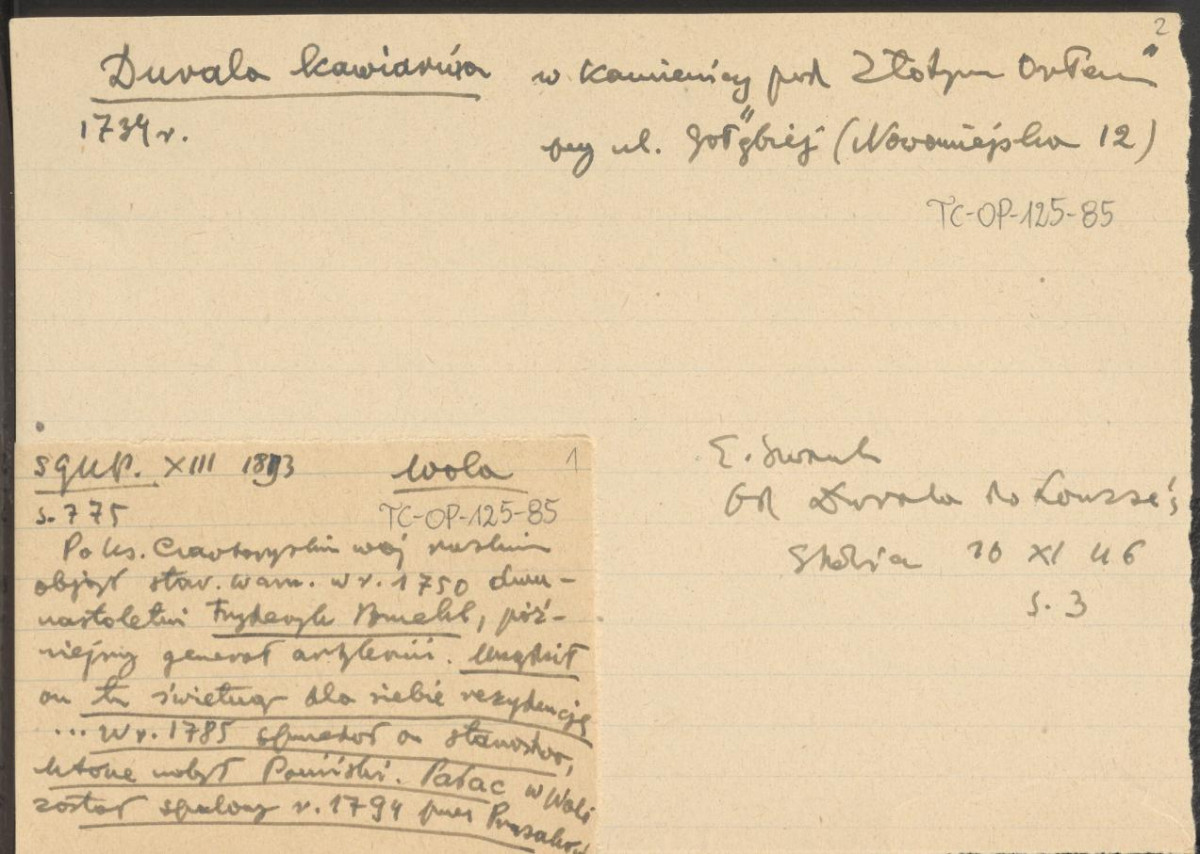 2
Duvala kawiarnia w kamienicy pod Złotym Orłem"
1734 r.
przy ul. Gołębiej (Nowomiejska 12)
TC-OP-125-85
E.
Od Duvala do Lourse'a
Stolica 10 XI 46
s. 3
SGKP. XIII 1893 Wola 1
s. 775
TC-OP-125-85
Po ks. Czartoryskim woj. ruskim
objął star. warsz. w r. 1750 dwu-
nastoletni Fryderyk Bruehl, póź-
niejszy generał artylerii. Urządził
on tu świetną dla siebie rezydencję
... W r. 1785 sprzedał on starostwo,
które nabył Poniński. Pałac w Woli
został spalony r. 1794 przez Prusaków